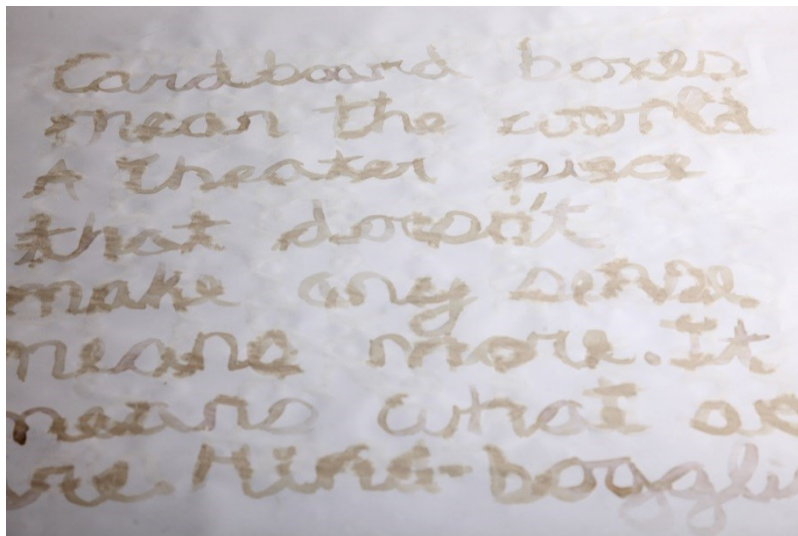 Cardboard boxes
mean the world
A theater piece
that doesn't
make any sense
means more. It
means what
are Mind-boggli